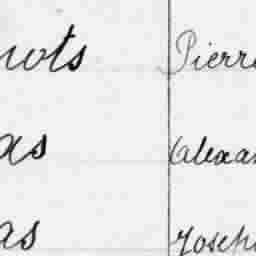 nots Pierre
as Alexan
as Joseph